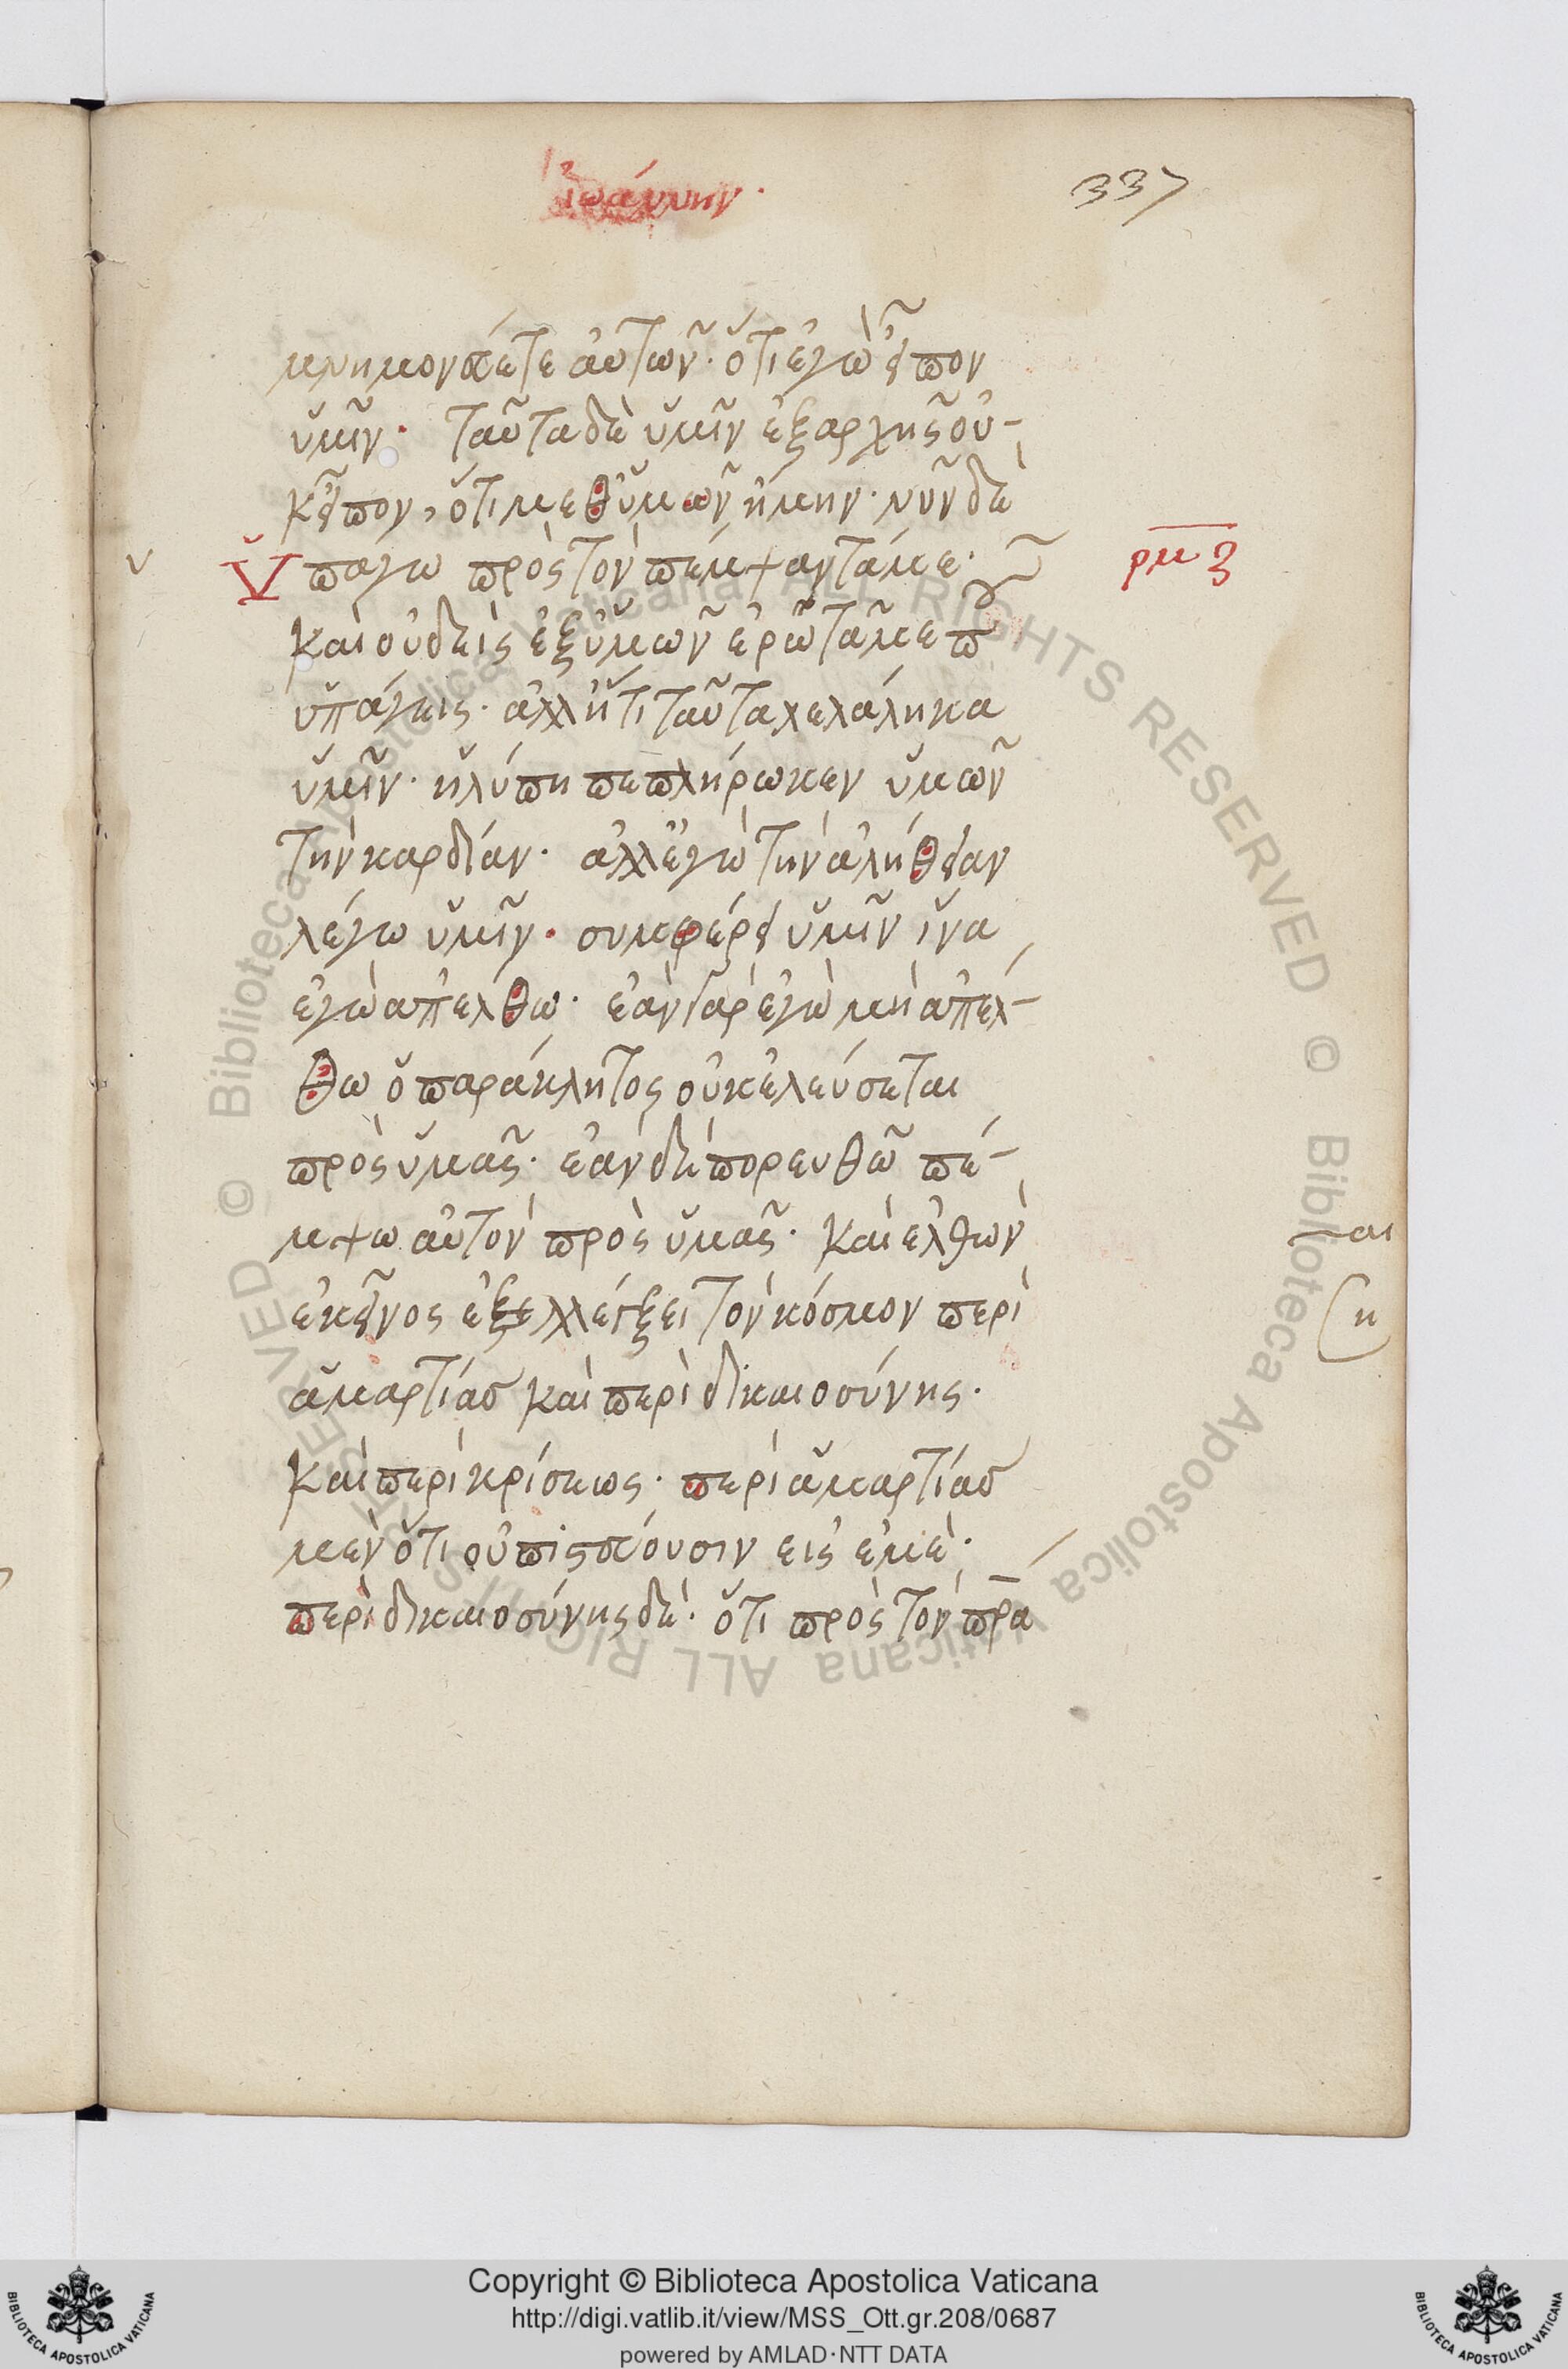 ἰωάννην·
337
μνημονεύετε αὐτῶν· ὅτι ἐγὼ εἶπον
ὑμῖν· ταῦτα δὲ ὑμῖν ἐξαρχῆς οὐ-
κ εἶπον, ὅτι μεθ ὑμῶν ἤμην· νῦν δὲ
ὑπαγω πρὸς τὸν πέμψαντά με·
ρμζ
καὶ οὐδεὶς ἐξ ὑμῶν ἐρωτᾶ με ποῦ
ὑπάγεις· ἀλλ ὅτι ταῦτα λελάληκα
ὑμῖν· η λύπη πεπλήρωκεν ὑμῶν
τὴν καρδίαν· ἀλλ ἐγὼ τὴν ἀλήθειαν
λέγω ὑμῖν· συμφέρει ὑμῖν ἵνα
ἐγὼ ἀπέλθω· ἐὰν γὰρ ἐγὼ μὴ ἀπέλ-
θω ὁ παράκλητος οὐκ ἐλεύσεται
πρὸς ὑμᾶς· ἐὰν δὲ πορευθῶ πέ-
μψω αὐτὸν πρὸς ὑμᾶς· καὶ ἐλθὼν
ἐκεῖνος ἐξελλέγξει τὸν κόσμον περὶ
ἁμαρτίας καὶ περὶ δικαιοσύνης·
καὶ περὶ κρίσεως· περὶ ἁμαρτίας
μὲν ὅτι οὐ πιστεύουσιν εἰς ἐμέ·
περὶ δικαιοσύνης δὲ· ὅτι πρὸς τὸν πρα
Copyright © Biblioteca Apostolica Vaticana
http://digi.vatlib.it/view/MSS_Ott.gr.208/0687
powered by AMLAD·NTT DATA